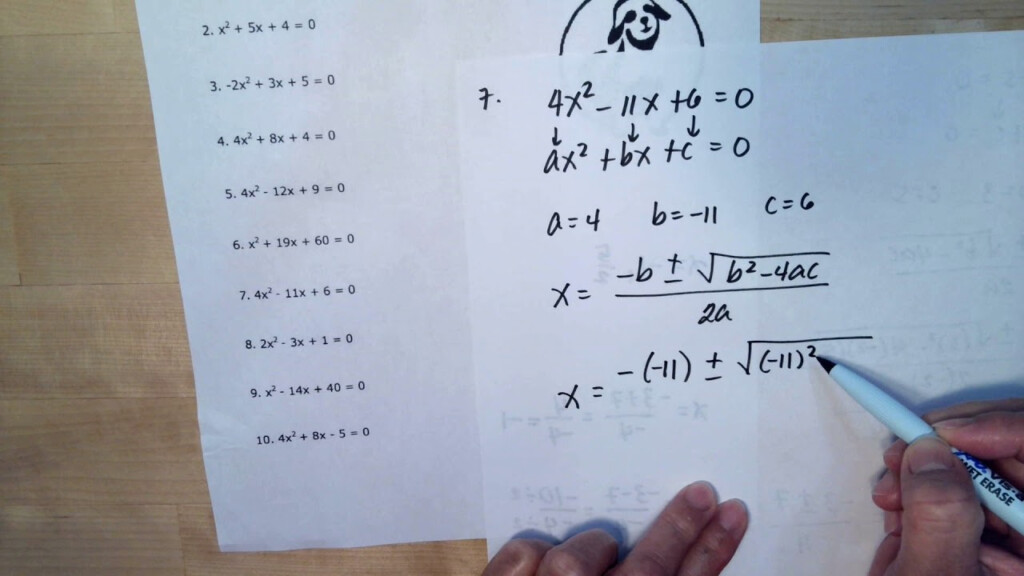 2. x² + 5x + 4 = 0
3. -2x² + 3x + 5 = 0
4. 4x² + 8x + 4 = 0
5. 4x² - 12x + 9 = 0
6. x² + 19x + 60 = 0
7. 4x² - 11x + 6 = 0
8. 2x² - 3x + 1 = 0
9. x² - 14x + 40 = 0
10. 4x² + 8x - 5 = 0
7. 4x² - 11x + 6 = 0
↓ ↓ ↓
ax² + bx + c = 0
a = 4 b = -11 c = 6
x = (-b ± √(b² - 4ac)) / 2a
x = -(-11) ± √(-11)²
WET ERASE